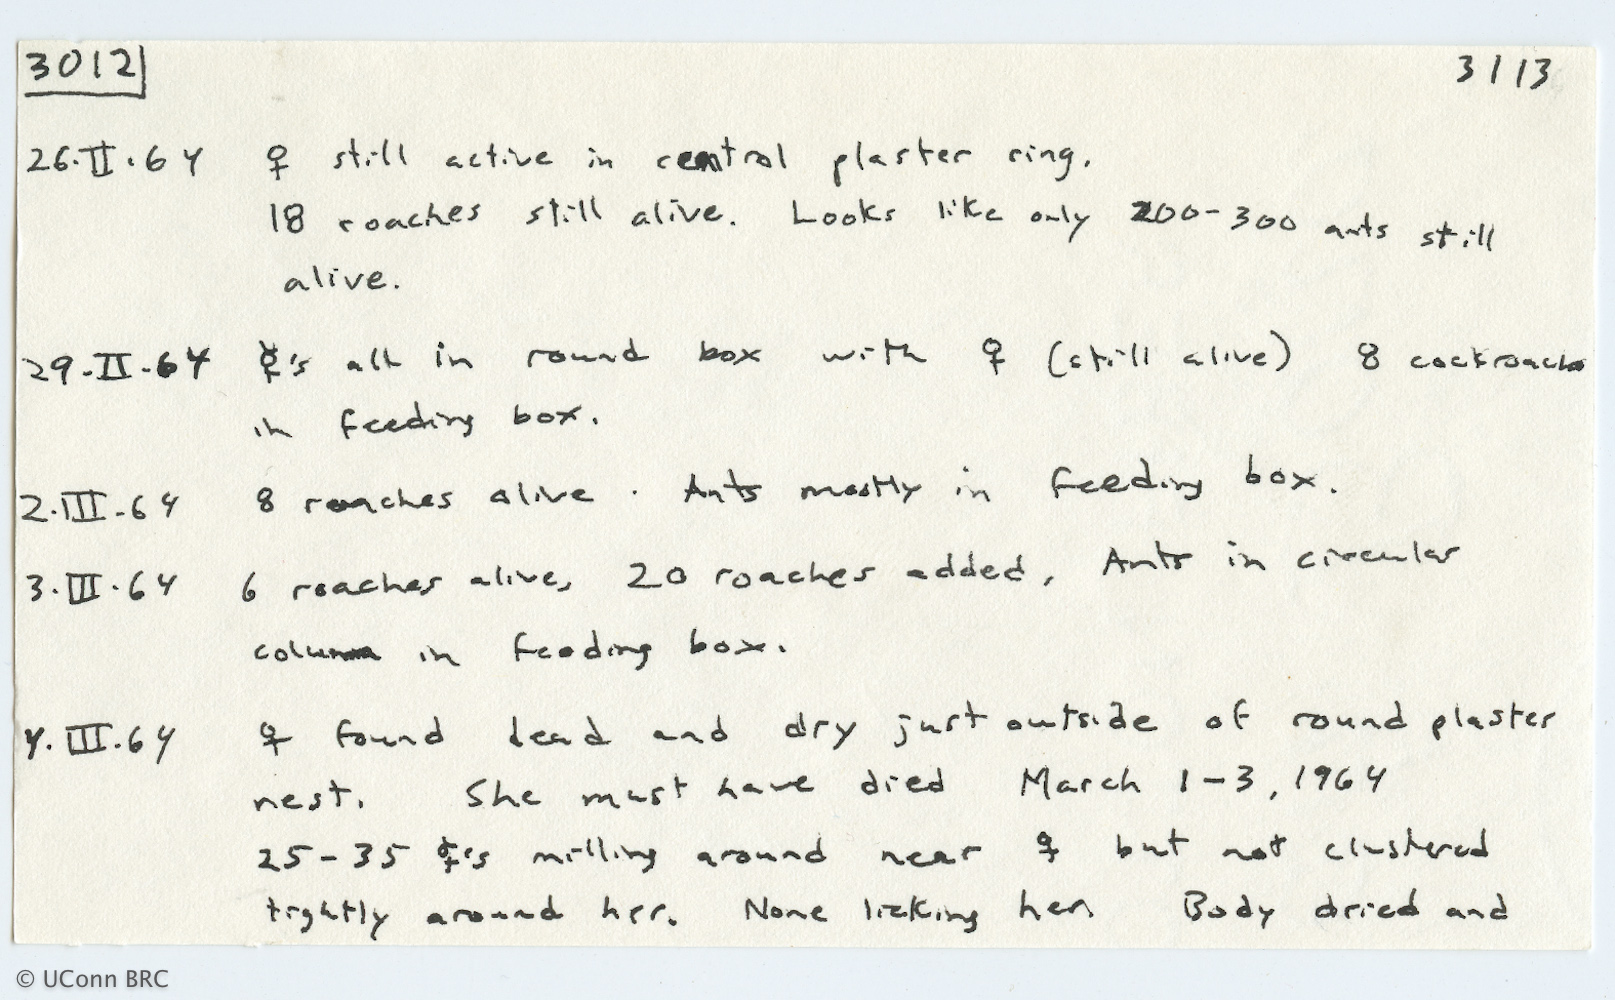 3012
3113
26.II.64 ♀ still active in central plaster ring.
18 roaches still alive. Looks like only 200-300 ants still
alive.
29.II.64 ☿'s all in round box with ♀ (still alive) 8 cockroaches
in feeding box.
2.III.64 8 roaches alive. Ants mostly in feeding box.
3.III.64 6 roaches alive, 20 roaches added, Ants in circular
column in feeding box.
4.III.64 ♀ found dead and dry just outside of round plaster
nest. She must have died March 1-3, 1964
25-35 ☿'s milling around near ♀ but not clustered
tightly around her. None licking her. Body dried and
© UConn BRC